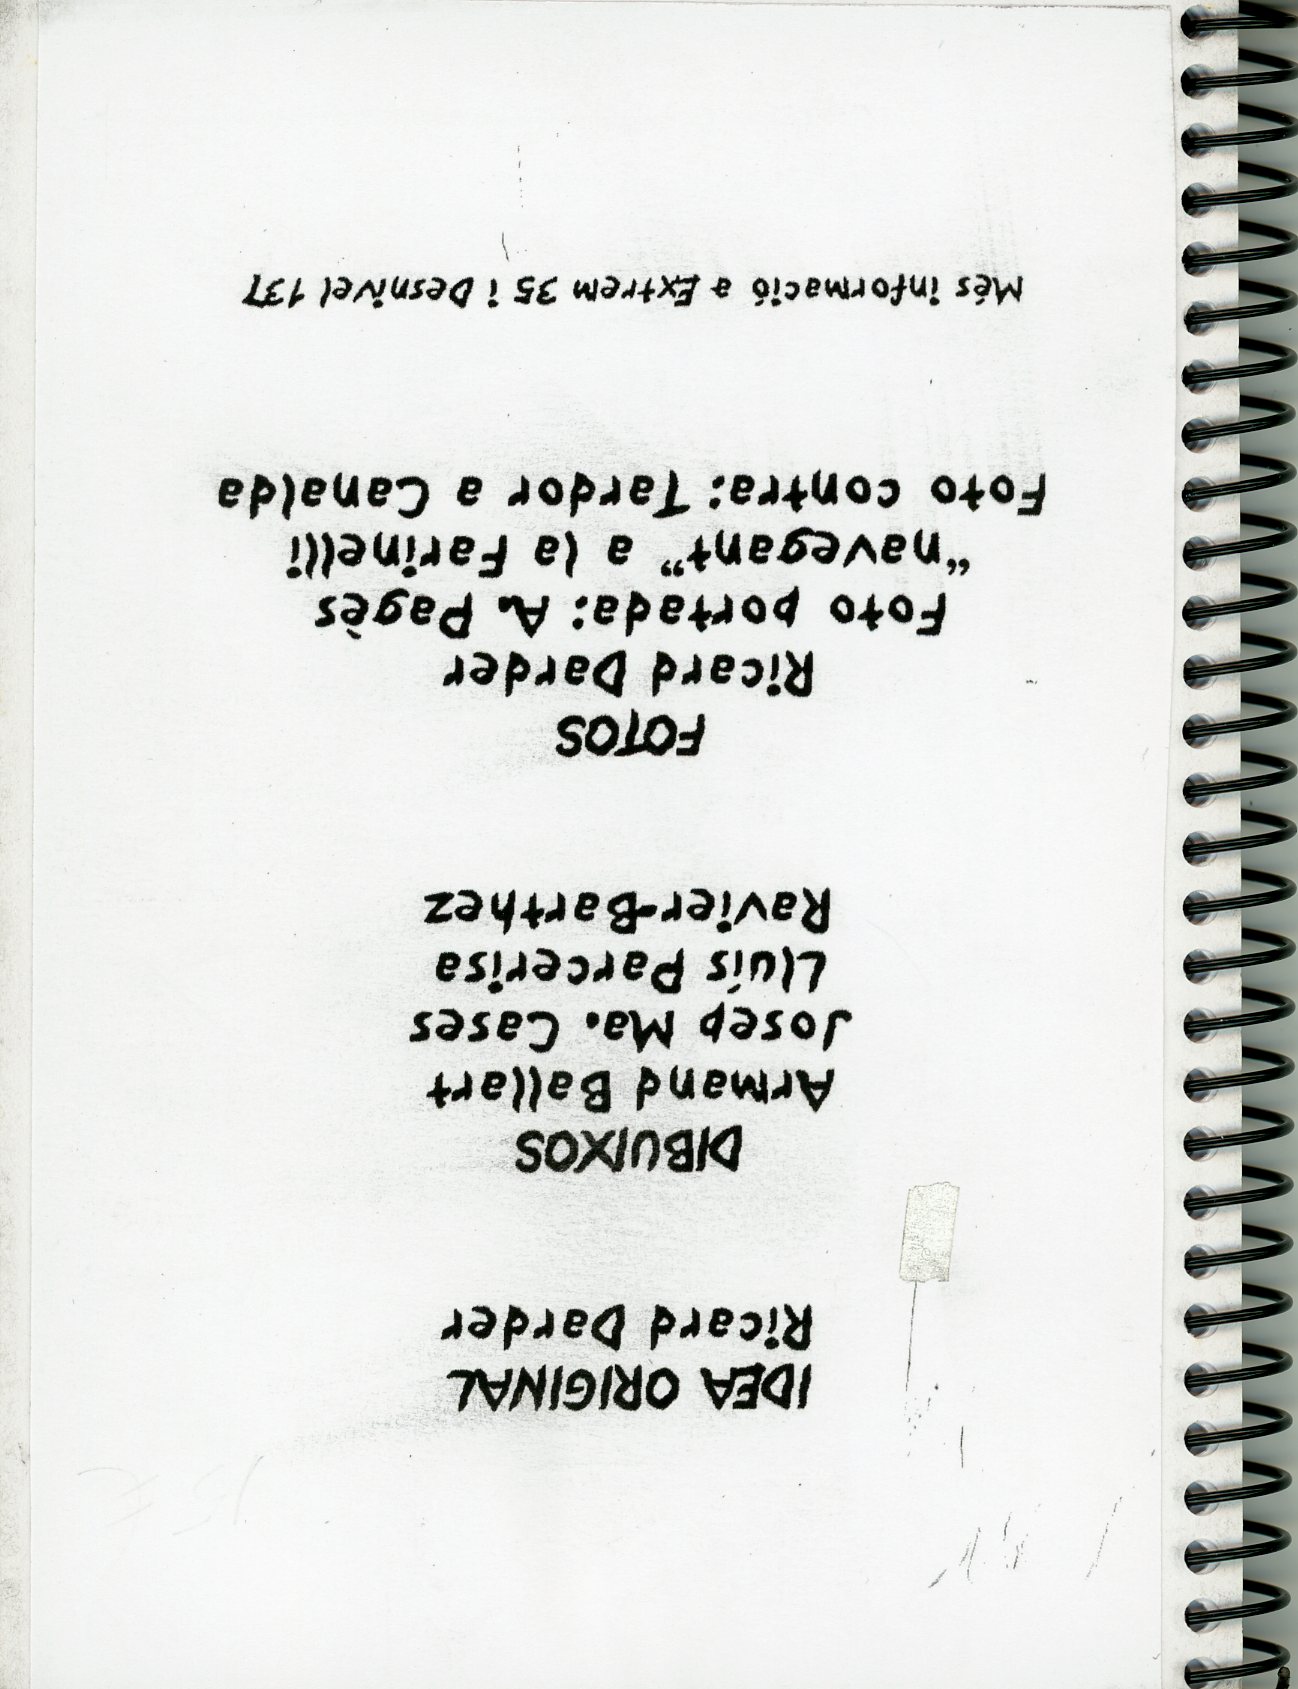 IDEA ORIGINAL
Ricard Darder
DIBUIXOS
Armand Ballart
Josep Ma. Cases
Lluís Parcerisa
Ravier-Barthez
FOTOS
Ricard Darder
Foto portada: A. Pagès
“navegant” a la Farinelli
Foto contra: Tardor a Canalda
Més informació a Extrem 35 i Desnivel 137